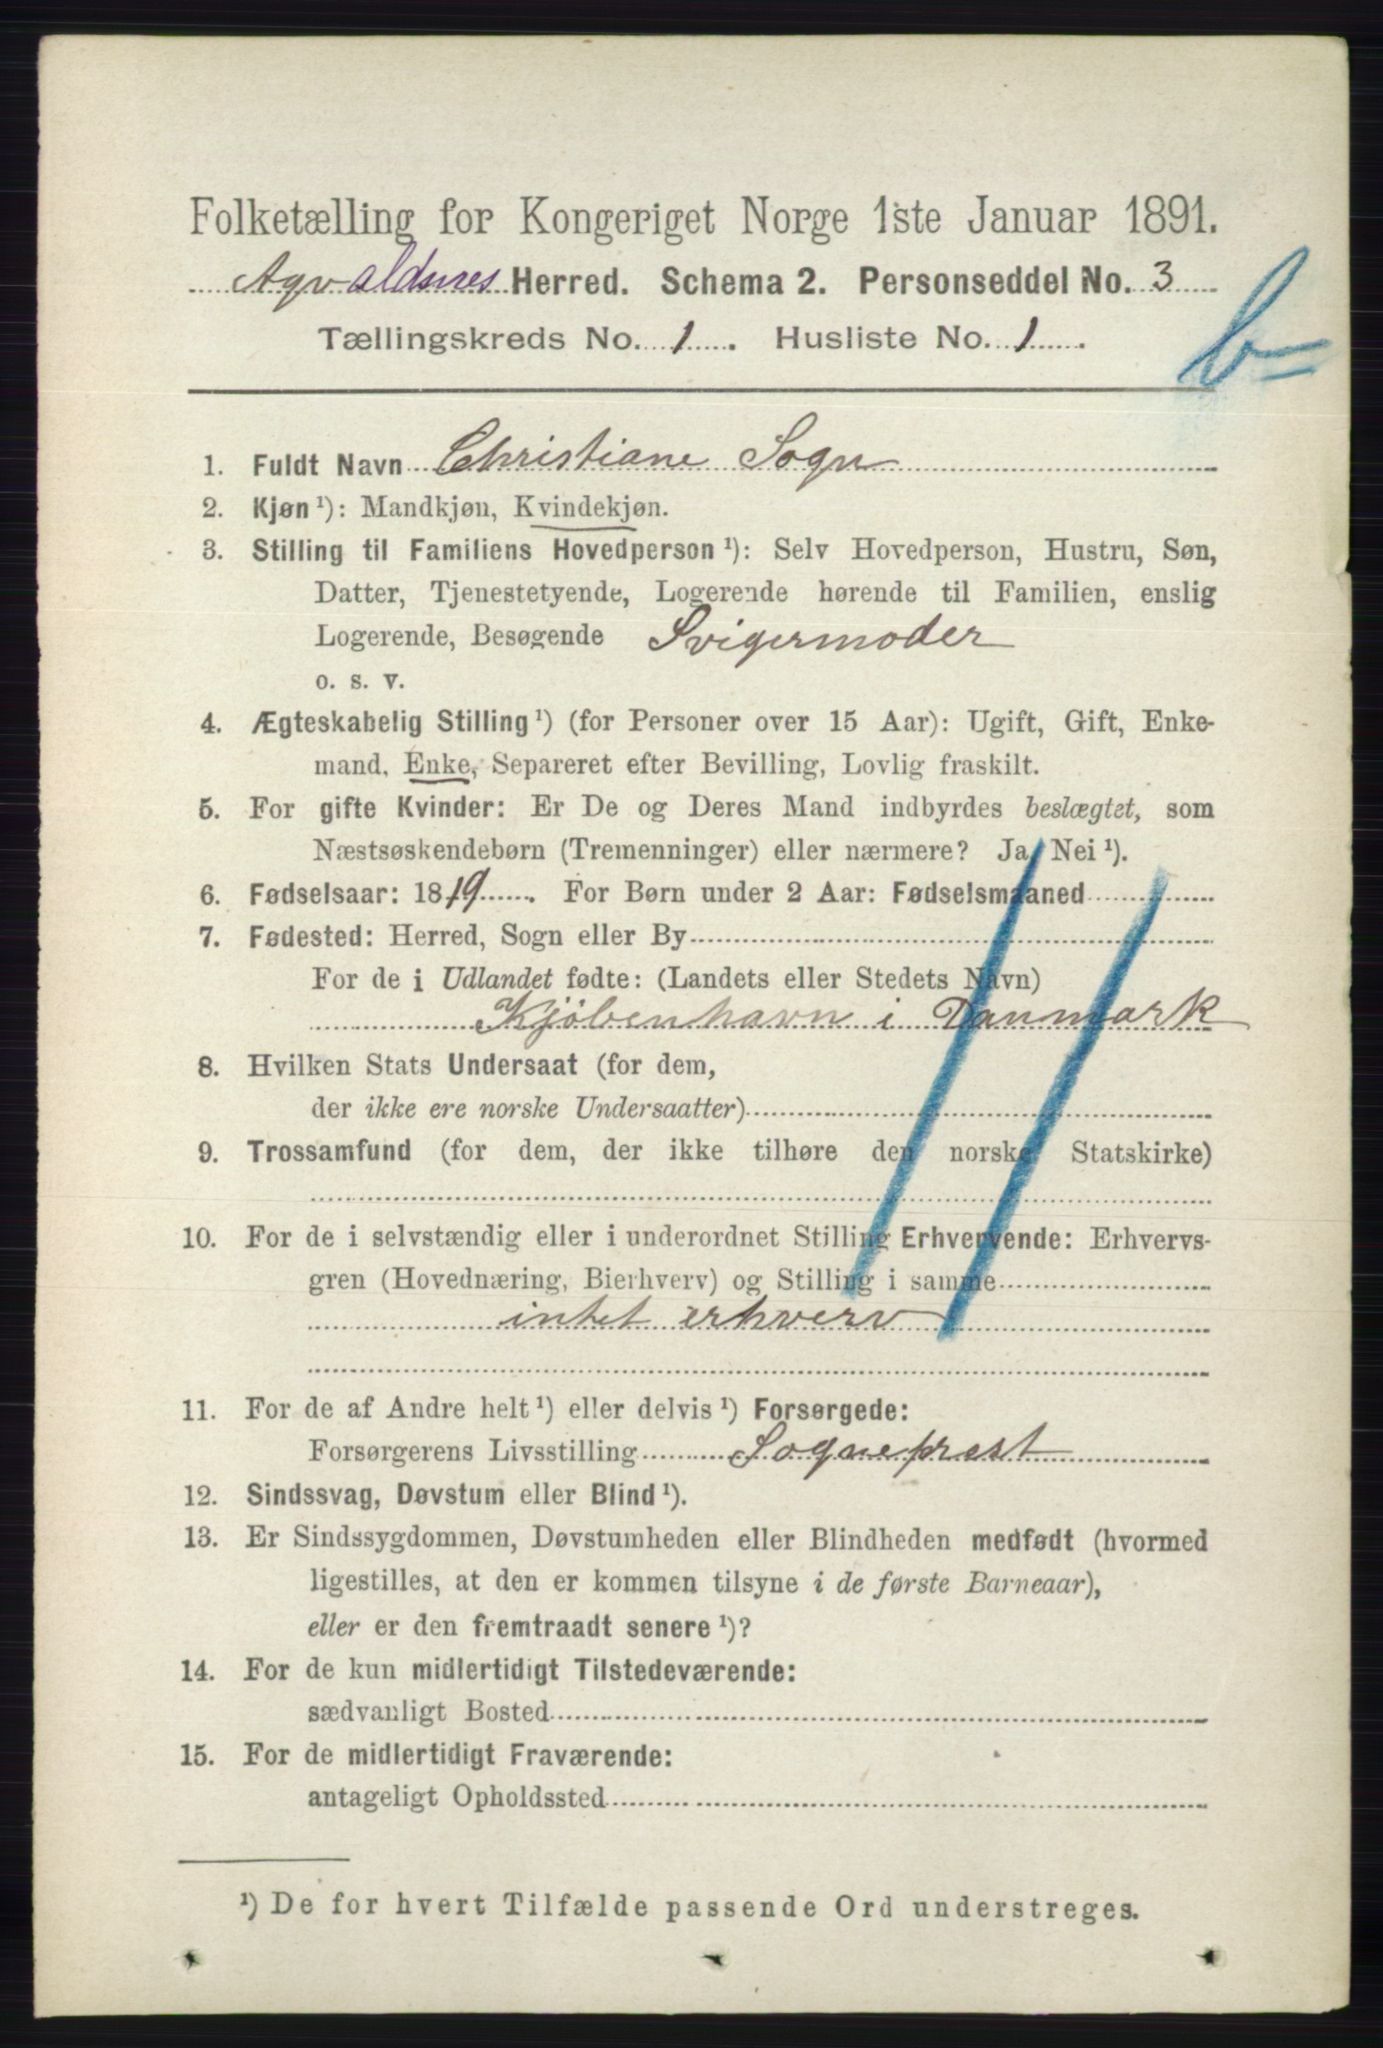 Folketælling for Kongeriget Norge 1ste Januar 1891.
Agvaldsnes Herred. Schema 2. Personseddel No. 3
Tællingskreds No. 1. Husliste No. 1.
b
1. Fuldt Navn Christiane Sogn
2. Kjøn ¹): Mandkjøn, Kvindekjøn.
3. Stilling til Familiens Hovedperson ¹): Selv Hovedperson, Hustru, Søn,
Datter, Tjenestetyende, Logerende hørende til Familien, enslig
Logerende, Besøgende Svigermoder
o. s. v.
4. Ægteskabelig Stilling ¹) (for Personer over 15 Aar): Ugift, Gift, Enke-
mand, Enke, Separeret efter Bevilling, Lovlig fraskilt.
5. For gifte Kvinder: Er De og Deres Mand indbyrdes beslægtet, som
Næstsøskendebørn (Tremenninger) eller nærmere? Ja, Nei ¹).
6. Fødselsaar: 1819. For Børn under 2 Aar: Fødselsmaaned
7. Fødested: Herred, Sogn eller By
For de i Udlandet fødte: (Landets eller Stedets Navn)
Kjöbenhavn i Danmark
8. Hvilken Stats Undersaat (for dem,
der ikke ere norske Undersaatter)
9. Trossamfund (for dem, der ikke tilhøre den norske Statskirke)
10. For de i selvstændig eller i underordnet Stilling Erhvervende: Erhvervs-
gren (Hovednæring, Bierhverv) og Stilling i samme
intet erhverv
11. For de af Andre helt ¹) eller delvis ¹) Forsørgede:
Forsørgerens Livsstilling Sogneprest
12. Sindssvag, Døvstum eller Blind ¹).
13. Er Sindssygdommen, Døvstumheden eller Blindheden medfødt (hvormed
ligestilles, at den er kommen tilsyne i de første Barneaar),
eller er den fremtraadt senere ¹)?
14. For de kun midlertidigt Tilstedeværende:
sædvanligt Bosted
15. For de midlertidigt Fraværende:
antageligt Opholdssted
¹) De for hvert Tilfælde passende Ord understreges.